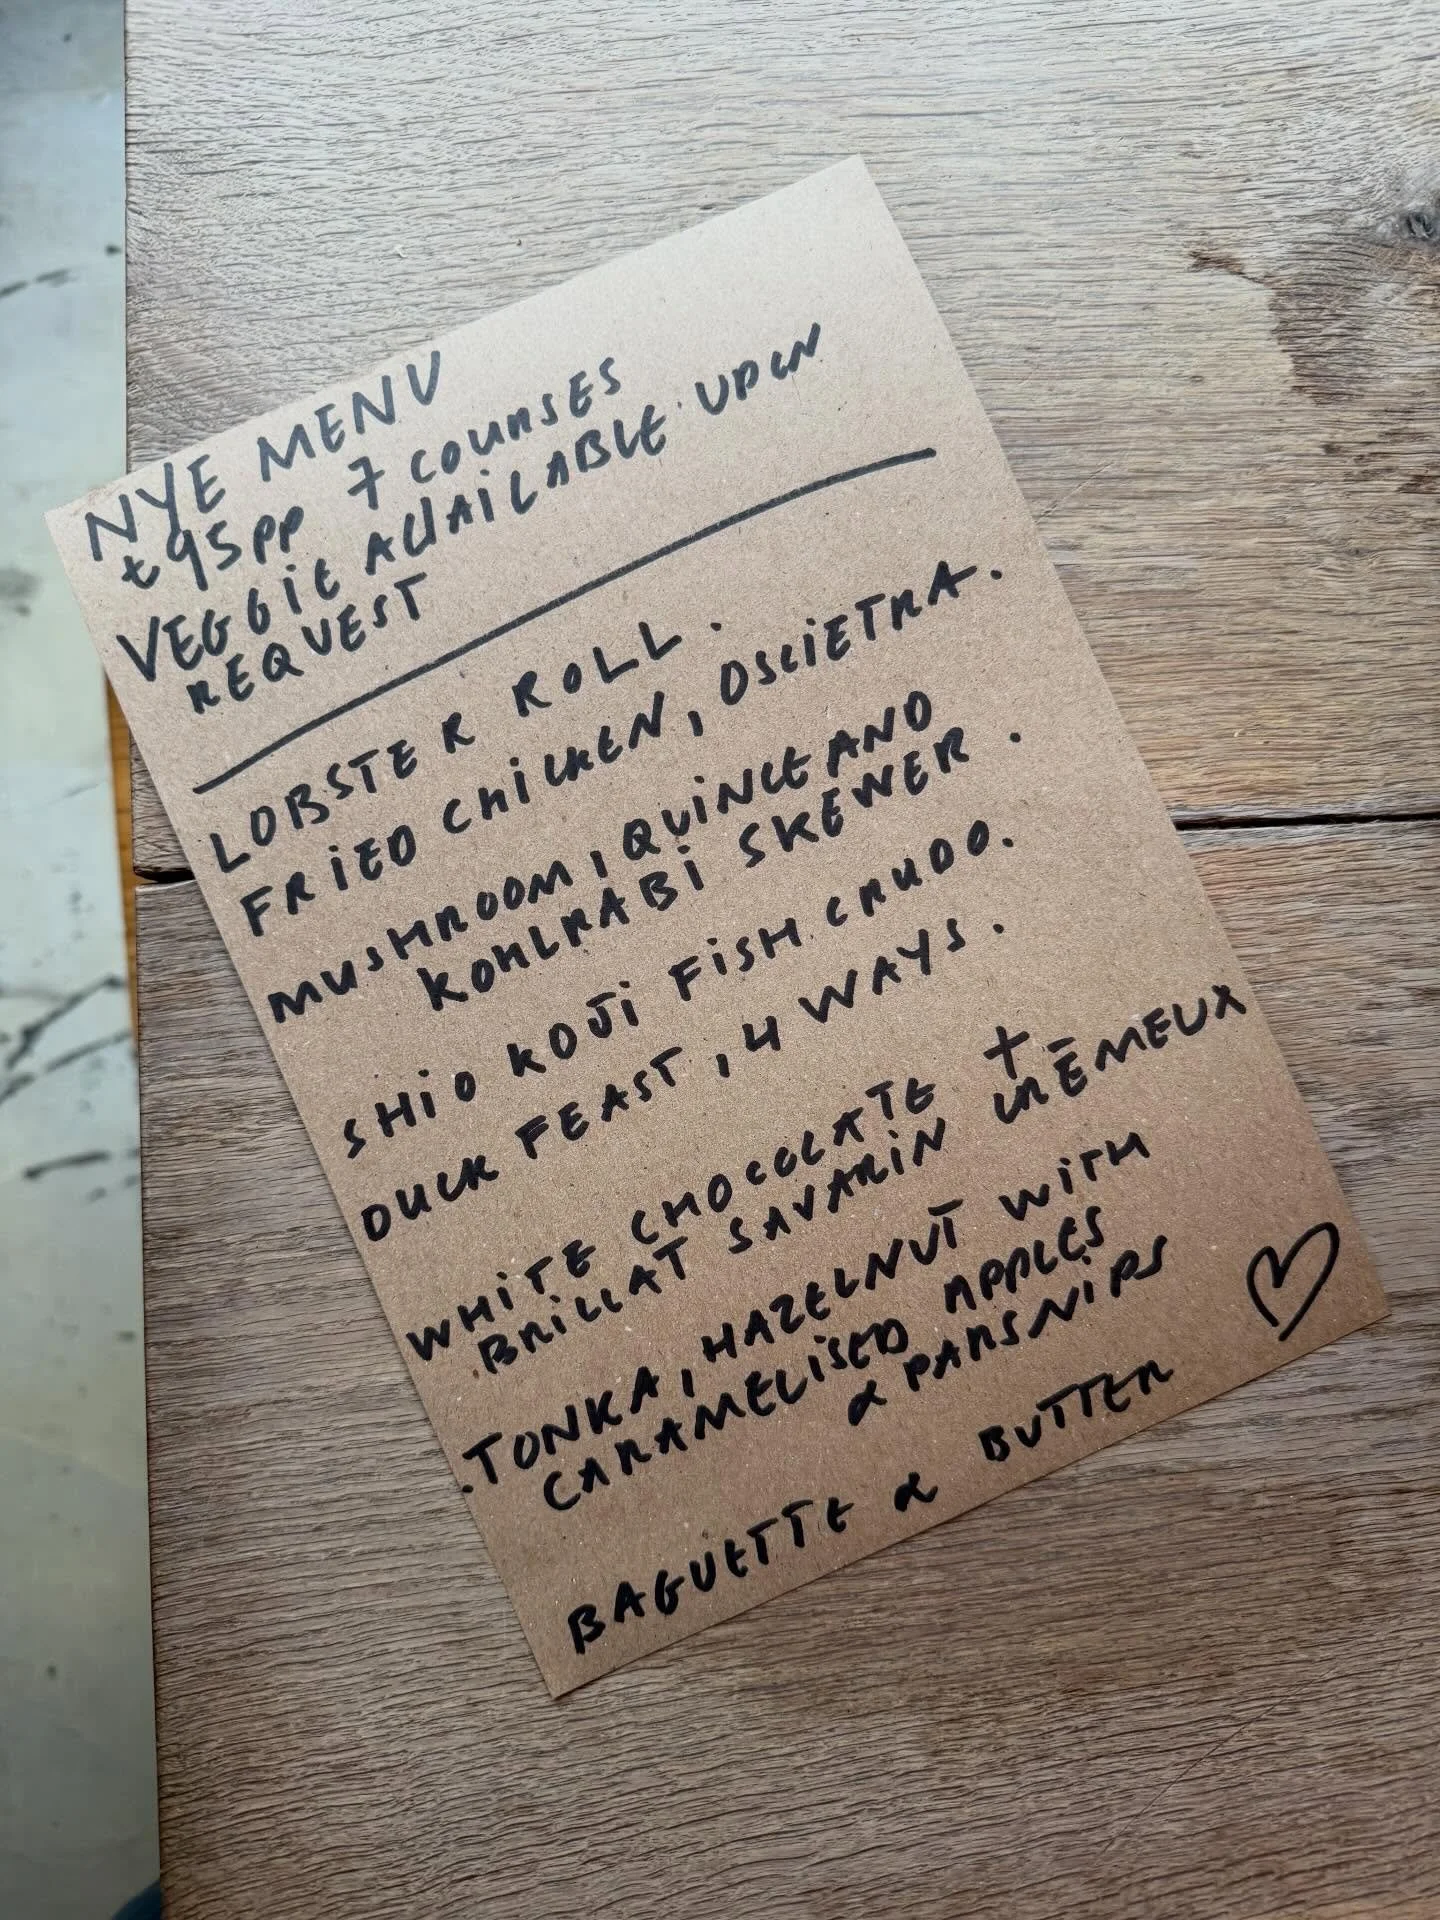 NYE MENU
£95pp 7 COURSES
VEGGIE AVAILABLE UPON
REQUEST
LOBSTER ROLL.
FRIED CHICKEN, OSCIETRA.
MUSHROOM, QUINCE AND
KOHLRABI SKEWER.
SHIO KOJI FISH CRUDO.
DUCK FEAST, 4 WAYS.
WHITE CHOCOLATE +
BRILLAT SAVARIN CRĒMEUX
.TONKA, HAZELNUT WITH
CARAMELISED APPLES
& PARSNIPS
BAGUETTE & BUTTER